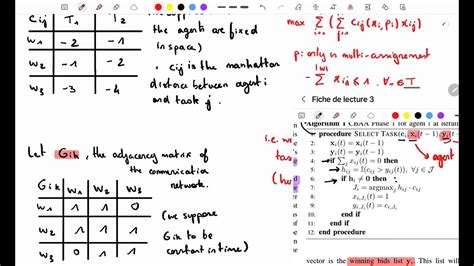 Cij T1 T2
w1 -2 -2
w2 -1 -1
w3 -3 -4
the agents are fixed
in space)
. cij is the manhattan
distance between agent i
and task j.
Let Gik, the adjacency matrix of
the communication
network.
Gik w1 w2 w3
w1 1 1 0
w2 1 1 1
w3 0 1 1
(we suppose
Gik to be
constant in time)
max Σ ( Σ Cij(xi, pi) xij)
pi only in multi-assignement
Fiche de lecture 3
Algorithm 1 CBAA Phase 1 for agent i at iterati
1: procedure SELECT TASK(ci, xi(t-1), yi(t-1)
2: xi(t) = xi(t-1)
3: yi(t) = yi(t-1)
4: if Σj xij(t) = 0 then
5: hij = I(cij > yij(t)), ∀j ∈ J
6: if hi ≠ 0 then
7: Ji = argmaxj hij · cij
8: xi,Ji(t) = 1
9: yi,Ji(t) = ci,Ji
10: end if
11: end if
12: end procedure
agent
vector is the winning bids list yi. This list